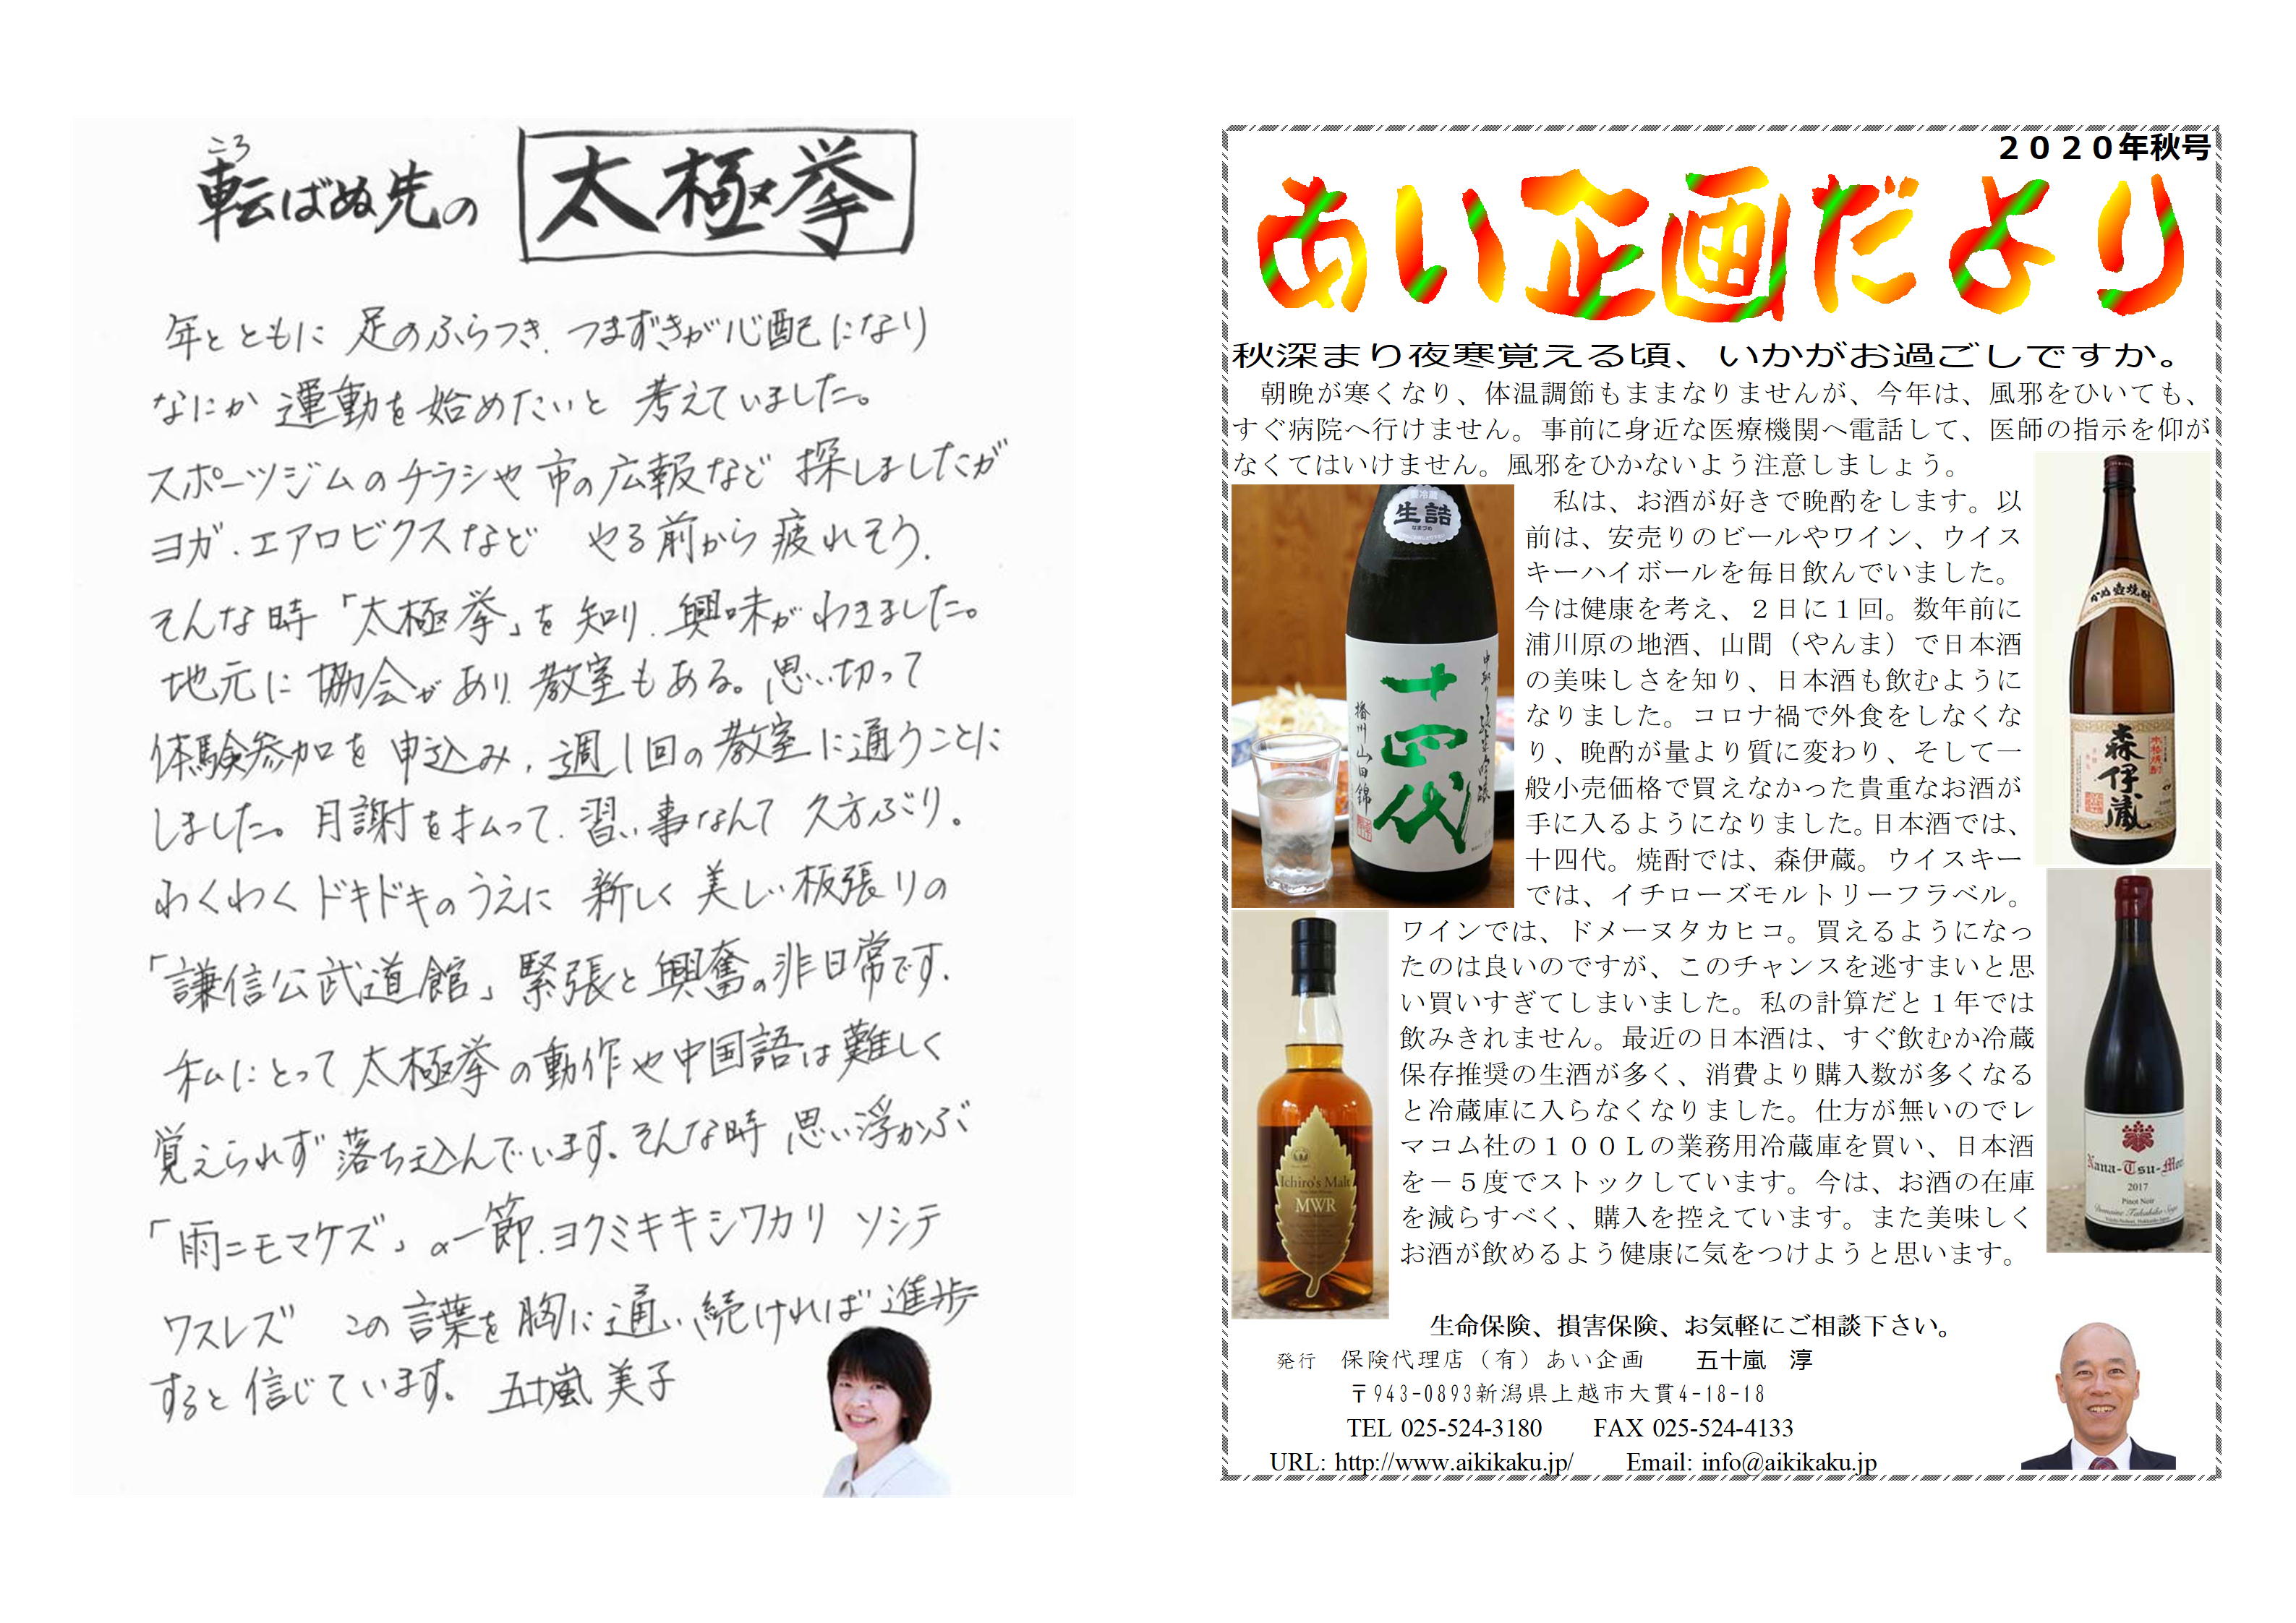 ころ
転ばぬ先の 太極拳
年とともに 足のふらつき、つまずきが心配になり
なにか 運動を始めたいと 考えていました。
スポーツジムのチラシや市の広報など 探しましたが
ヨガ、エアロビクスなど やる前から疲れそう、
そんな時「太極拳」を知り、興味がわきました。
地元に協会があり、教室もある。思い切って
体験参加を申込み、週1回の教室に通うことに
しました。月謝を払って、習い事なんて 久方ぶり。
わくわくドキドキのうえに 新しく 美しい板張りの
「謙信公武道館」緊張と興奮の非日常です、
私にとって太極拳の動作や中国語は難しく
覚えられず落ち込んでいます。そんな時 思い浮かぶ
「雨ニモマケズ」の一節、ヨクミキキシワカリ ソシテ
ワスレズ この言葉を胸に通い続ければ 進歩
すると信じています。 五十嵐 美子
２０２０年秋号
あい企画だより
秋深まり夜寒覚える頃、いかがお過ごしですか。
朝晩が寒くなり、体温調節もままなりませんが、今年は、風邪をひいても、
すぐ病院へ行けません。事前に身近な医療機関へ電話して、医師の指示を仰が
なくてはいけません。風邪をひかないよう注意しましょう。
私は、お酒が好きで晩酌をします。以
前は、安売りのビールやワイン、ウイス
キーハイボールを毎日飲んでいました。
今は健康を考え、２日に１回。数年前に
浦川原の地酒、山間（やんま）で日本酒
の美味しさを知り、日本酒も飲むように
なりました。コロナ禍で外食をしなくな
り、晩酌が量より質に変わり、そして一
般小売価格で買えなかった貴重なお酒が
手に入るようになりました。日本酒では、
十四代。焼酎では、森伊蔵。ウイスキー
では、イチローズモルトリーフラベル。
ワインでは、ドメーヌタカヒコ。買えるようになっ
たのは良いのですが、このチャンスを逃すまいと思
い買いすぎてしまいました。私の計算だと１年では
飲みきれません。最近の日本酒は、すぐ飲むか冷蔵
保存推奨の生酒が多く、消費より購入数が多くなる
と冷蔵庫に入らなくなりました。仕方が無いのでレ
マコム社の１００Ｌの業務用冷蔵庫を買い、日本酒
を－５度でストックしています。今は、お酒の在庫
を減らすべく、購入を控えています。また美味しく
お酒が飲めるよう健康に気をつけようと思います。
要冷蔵
生詰
なまづめ
十四代
播州山田錦
かめ壺焼酎
本格焼酎
森伊蔵
Ichiro's Malt
MWR
Nana-Tsu-Mori
2017
Pinot Noir
Domaine Takahiko Soga
生命保険、損害保険、お気軽にご相談下さい。
発行 保険代理店（有）あい企画 五十嵐 淳
〒943-0893新潟県上越市大貫4-18-18
TEL 025-524-3180 FAX 025-524-4133
URL: http://www.aikikaku.jp/ Email: info@aikikaku.jp